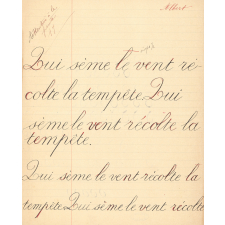 Albert
Qui sème le vent ré
colte la tempête. Qui
sème le vent récolte la
tempête.
Qui sème le vent récolte la
tempête. Qui sème le vent récolte